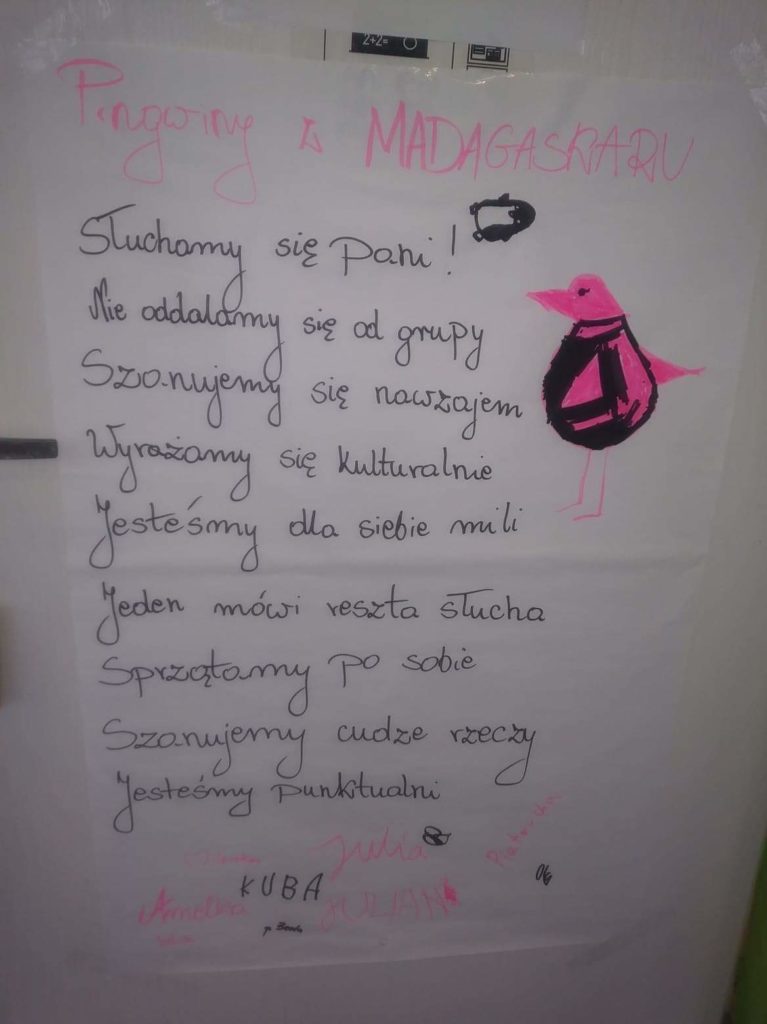 2+2=
Pingwiny z MADAGASKARU
Słuchamy się pani!
Nie oddalamy się od grupy
Szanujemy się nawzajem
Wyrażamy się kulturalnie
Jesteśmy dla siebie mili
Jeden mówi reszta słucha
Sprzątamy po sobie
Szanujemy cudze rzeczy
Jesteśmy punktualni
Julia
KUBA
Amelka
JULIAN